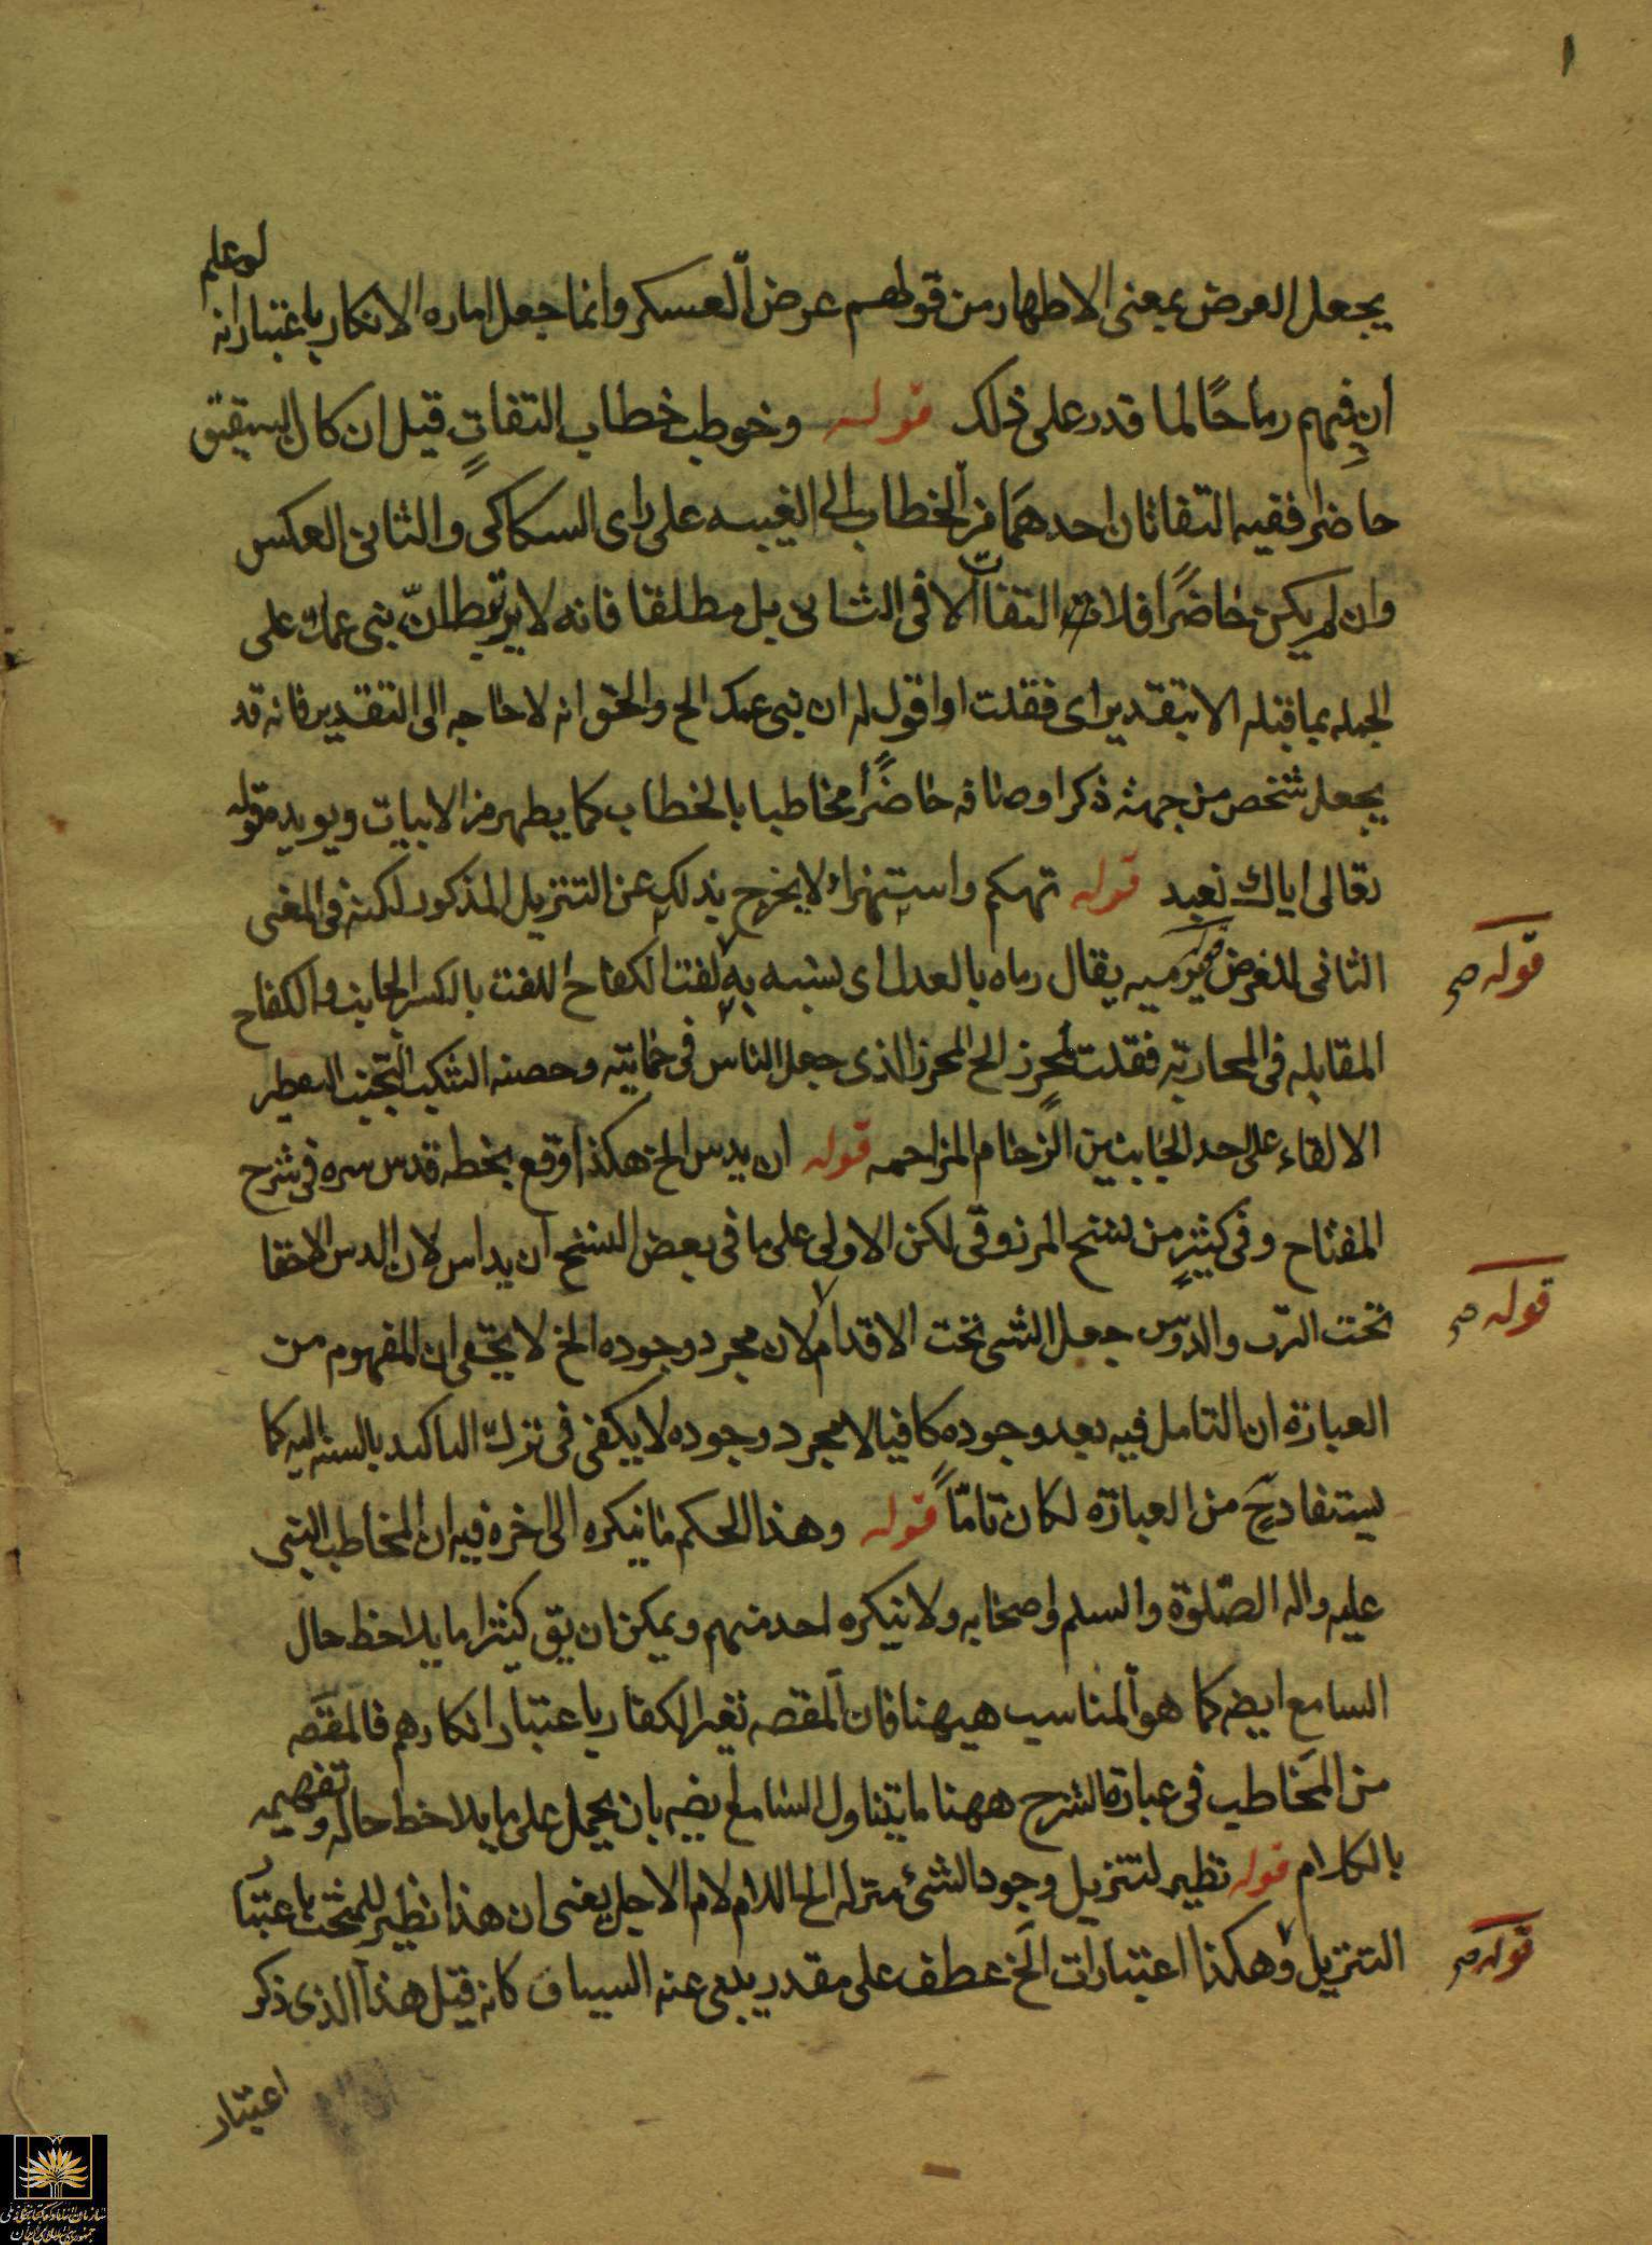 ١
يجعل العرض بمعنى الاظهار من قولهم عرض العسكر وانما جعل اماره الانكار باعتبار انه لو علم
ان فيهم رماحًا لما قدر على ذلك قوله وخوطب خطاب التفات قيل ان كان الشقيق
حاضرا ففيه التفاتان احدهما من الخطاب الى الغيبه على راى السكاكى والثانى العكس
وان لم يكن حاضرًا فلا التفات الا فى الثانى بل مطلقا فانه لا يرتبط انّ بنى عمك على
الجمله بما قبله الا بتقدير اى فقلت او اقول له ان بنى عمك الخ والحق انه لا حاجه الى التقدير فانه قد
يجعل شخص من جهة ذكر اوصافه حاضرًا مخاطبا بالخطاب كما يظهر من الابيات ويويده قوله
تعالى اياك نعبد قوله تهكم واستهزاء لا يخرج بذلك عن التنزيل المذكور لكنه فى المعنى
الثانى للغرض قوله يرميه يقال رماه بالعدل اى نسبه به لفت الكفاح اللفت بالكسر الجانب والكفاح
قوله صح
المقابله فى المحاربة فقلت لمحرز الخ المحرز الذى جعل الناس فى حمايته وحصنه التنكب التجنب التقطير
الالقاء على احد الجانبين الزحام المزاحمه قوله ان يدس الخ هكذا وقع بخطه قدس سره فى شرح
المفتاح وفى كثير من نسخ المرزوقى لكن الاولى على ما فى بعض النسخ ان يداس لان الدس الاخفا
تحت الترب والدوس جعل الشى تحت الاقدام لان مجرد وجوده الخ لا يخفى ان المفهوم من
قوله صح
العبارة ان التامل فيه بعد وجوده كافيا لا مجرد وجوده لا يكفى فى ترك التاكيد بالنسبه اليه كما
يستفاد ح من العبارة لكان تامّاً قوله وهذا الحكم ما ينكره الى اخره فيه ان المخاطب النبى
عليه واله الصّلوة والسلم واصحابه ولا ينكره احد منهم ويمكن ان يق كثيرا ما يلاحظ حال
السامع ايضه كما هو المناسب هيهنا فان المقصه تغير الكفار باعتبار انكارهم فالمقصه
من المخاطب فى عبارة الشرح ههنا ما يتناول السامع ايضه بان يحمل على ما يلاحظ حاله وتفهيمه
بالكلام قوله نظير لتنزيل وجود الشئ منزله الخ اللام لام الاجل يعنى ان هذا نظير للمبحث باعتبار
التنزيل وهكذا اعتبارات الخ عطف على مقدر ينبى عنه السياق كانه قيل هذا الذى ذكر
قوله صح
اعتبار